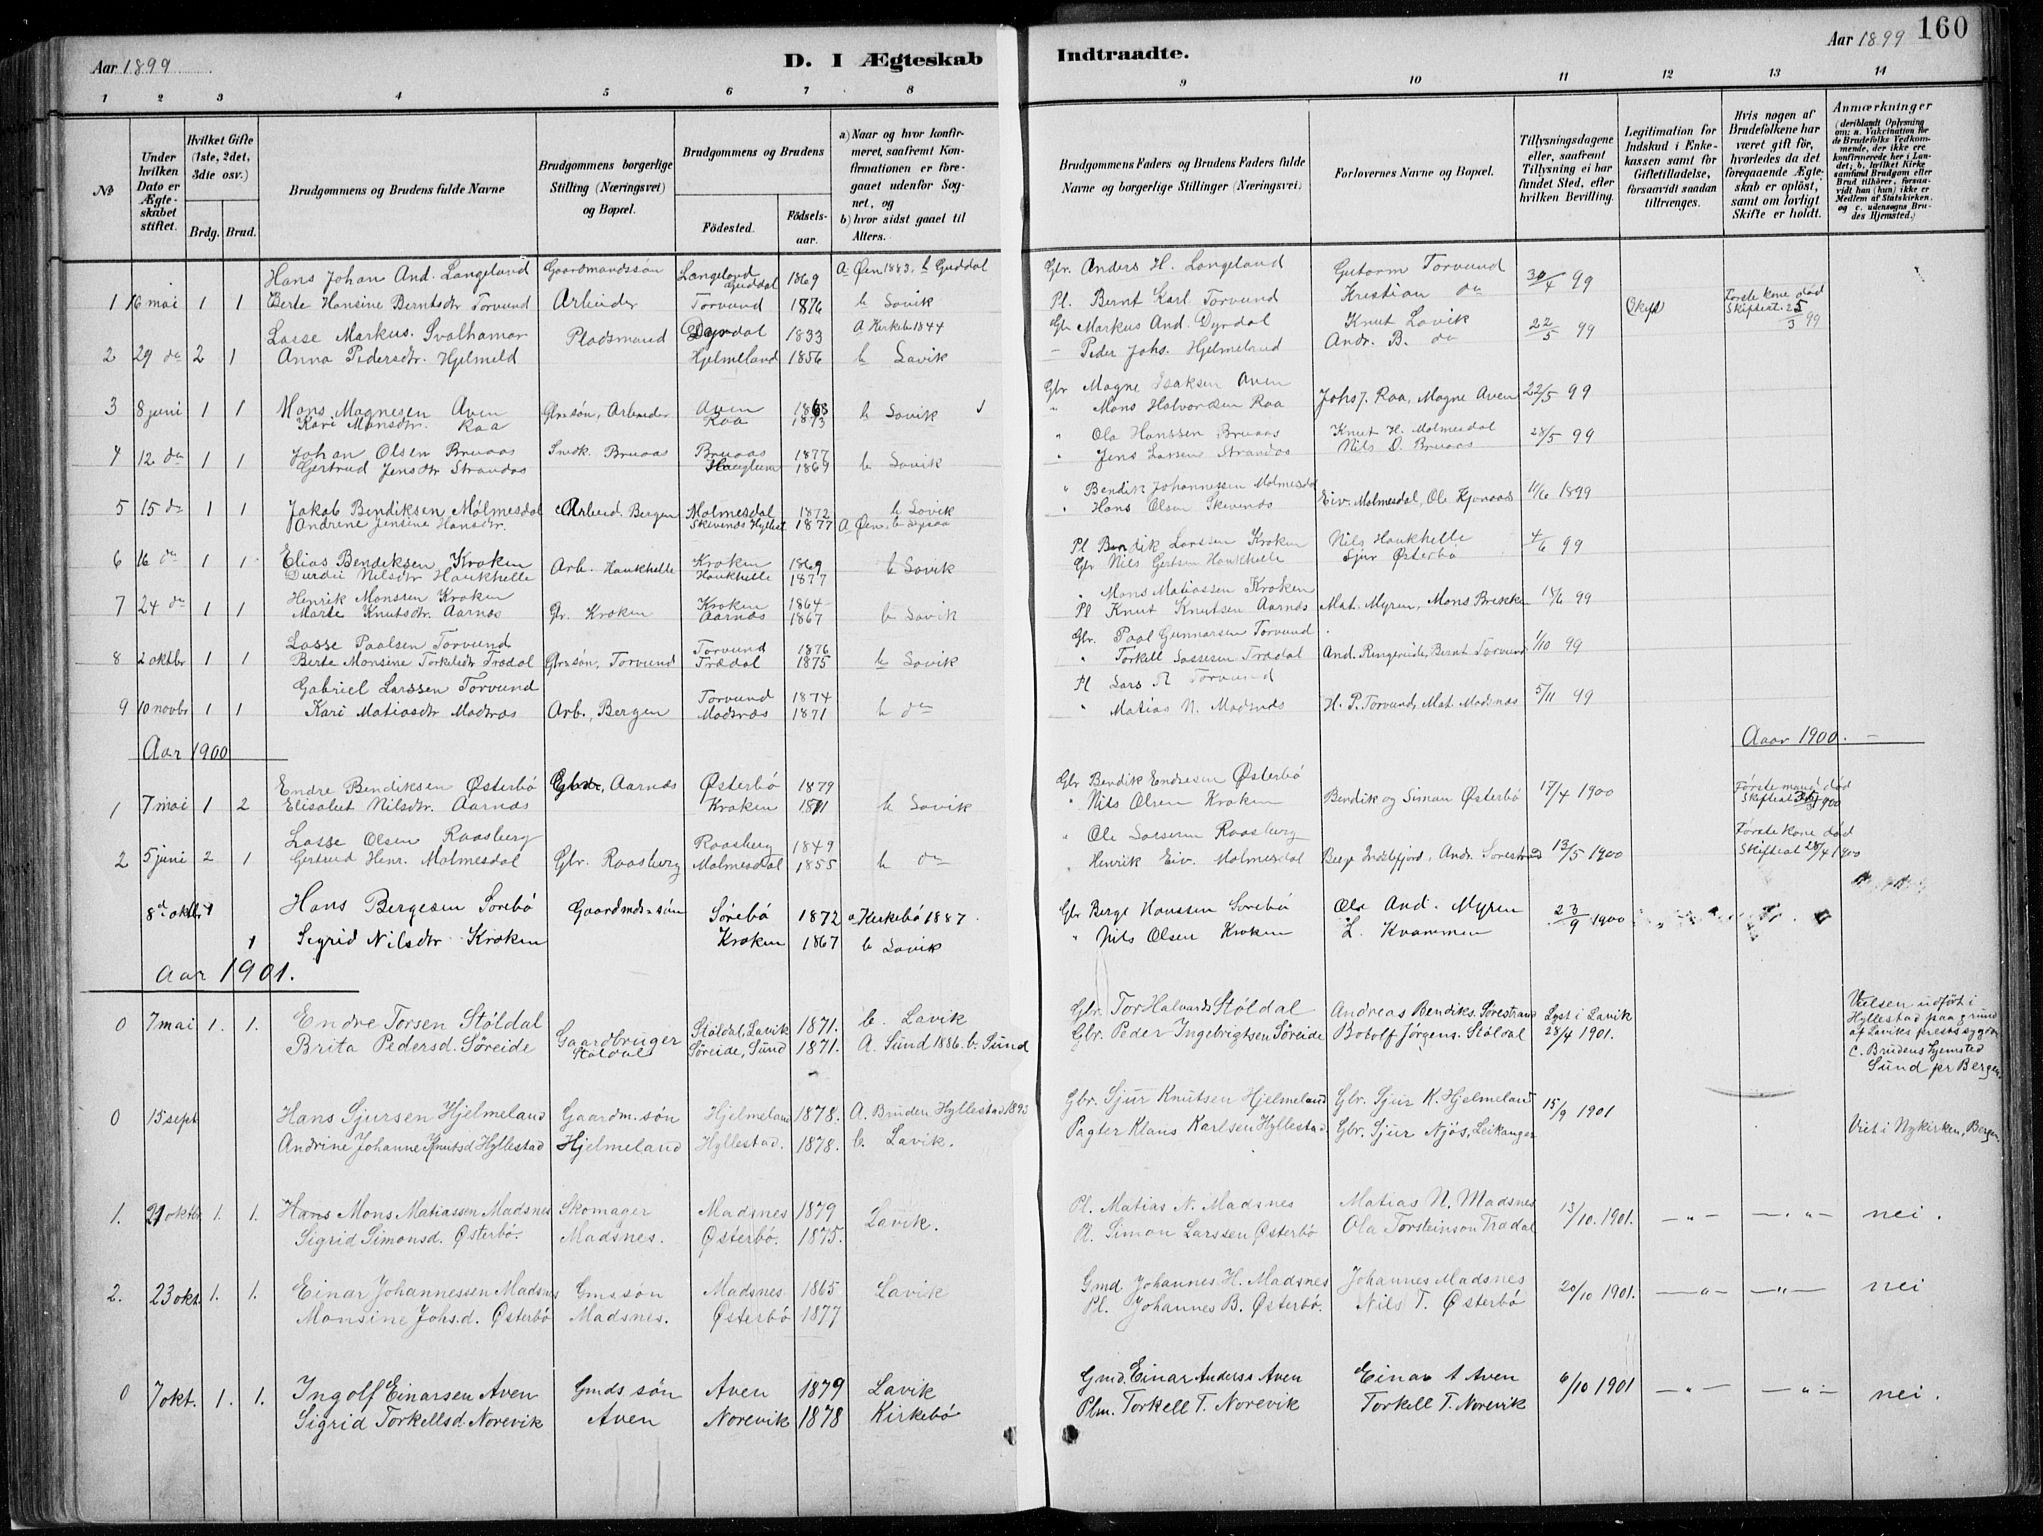 Aar 1899
D. I Ægteskab
Indtraadte.
Aar 1899
160
1 2 3 4 5 6 7 8 9 10 11 12 13 14
№
Under hvilken Dato er Ægteskabet stiftet.
Hvilket Gifte (1ste, 2det, 3die osv.)
Brdg. Brud.
Brudgommens og Brudens fulde Navne
Brudgommens borgerlige Stilling (Næringsvei) og Bopæl.
Brudgommens og Brudens
Födested.
Födselsaar.
a) Naar og hvor konfirmeret, saafremt Konfirmationen er foregaaet udenfor Sognet, og
b) hvor sidst gaaet til Alters.
Brudgommens Faders og Brudens Faders fulde Navne og borgerlige Stillinger (Næringsvei)
Forlovernes Navne og Bopæl.
Tillysningsdagene eller, saafremt Tillysning ei har fundet Sted, efter hvilken Bevilling.
Legitimation for Indskud i Enkekassen samt for Giftetilladelse, forsaavidt saadan tiltrænges.
Hvis nogen af Brudefolkene har været gift för, hvorledes da det foregaaende Ægteskab er oplöst, samt om lovligt Skifte er holdt.
Anmærkninger (deriblandt Oplysning om: a. Vakcination for de Brudefolks Vedkommende, der ikke ere konfirmerede her i Landet; b. hvilket Kirkesamfund Brudgom eller Brud tilhörer, forsaavidt han (hun) ikke er Medlem af Statskirken, og c. udensogns Brudes Hjemsted.)
Hans Johan And. Langeland Gaardmandssøn Langeland Guddal 1869 A. Øen 1883, b Guddal Gbr. Anders H. Langeland Gutorm Torvund
1 16 mai 1 1 Berte Hansine Berntsdtr Torvund Arbeider Torvund 1876 b Lavik Pl. Bernt Karl Torvund Kristian do 30/4 99
Lasse Markus. Svalhamar Pladsmand Dyrdal 1833 A Kirkebø 1844 Gbr Markus And. Dyrdal Knut Lavik Første kone død
2 29 do 2 1 Anna Pedersdtr. Hjelmeld Hjelmeland 1856 b Lavik – Peder Johs. Hjelmeland Andr. B. do 22/5 99 Skifteat. 25/3 99
3 8 juni 1 1 Mons Magnesen Aven Gbr søn, Arbeider Aven 1868 b Lavik Gbr Magne Isaksen Aven Johs J. Raa, Magne Aven 22/5 99
Kari Monsdtr. Raa Raa 1873 " Mons Halvorsen Raa
4 12 do 1 1 Johan Olsen Bruaas Smdk. Bruaas Bruaas 1877 " Ola Hanssen Bruaas Knut H. Molmesdal 28/5 99
Gertrud Jensdtr Strandos Haugland 1869 b Lavik " Jens Larsen Strandos Nils O. Bruaas
5 15 do 1 1 Jakob Bendiksen Mølmesdal Arbeid. Bergen Molmesdal 1872 b Lavik " Bendik Johannessen Molmesdal Eiv. Molmesdal, Ole Kjønaas 11/6 1899
Andrine Jensine Hansdtr. Skivenes Hyllest 1877 A Øen, b " Hans Olsen Skivenes
6 16 do 1 1 Elias Bendiksen Kroken Arb. Haukhelle Kroken 1869 b Lavik Pl Bendik Larssen Kroken Nils Haukhelle 4/6 99
Durdei Nilsdtr Haukhelle Haukhelle 1877 Gbr Nils Gertsen Haukhelle Sjur Østerbø
7 24 do 1 1 Henrik Monssen Kroken Gbr. Kroken Kroken 1864 b Lavik " Mons Matiassen Kroken Mat. Myren, Mons Brekken 18/6 99
Marte Knutsdtr. Aarnes Aarnes 1867 Pl Knut Knutsen Aarnes
8 2 oktbr 1 1 Lasse Paalsen Torvund Gbr søn, Torvund Torvund 1876 b Lavik Gbr. Paal Gunnarsen Torvund And. Ringereide, Bernt Torvund 1/10 99
Berte Monsine Torkilsdtr Trædal Trædal 1875 " Torkell Lassesen Trædal
9 10 novbr 1 1 Gabriel Larssen Torvund Arb., Bergen Torvund 1874 b do Pl Lars A Torvund H. P. Torvund, Mat. Madsnes 5/11 99
Kari Matiasdtr Madsnæs Madsnæs 1871 " Matias N. Madsnes
Aar 1900 Aaar 1900. –
1 7 mai 1 2 Endre Bendiksen Østerbø Gbr, Aarnes Østerbø 1879 b Lavik Gbr Bendik Endresen Østerbø Bendik og Simon Østerbø 17/4 1900 Første mand død
Elisabet Nilsdtr. Aarnes Kroken 1871 " Nils Olsen Kroken Skifteat
2 5 juni 2 1 Lasse Olsen Raasberg Gbr. Raasberg Raasberg 1849 b do " Ole Lassesen Raasberg Berge Indrefjord, And. Sørestrand 13/5 1900 Første kone død
Gertrud Henr. Molmesdal Molmesdal 1855 Henrik Eiv. Molmesdal Skifteat 28/4 1900
8de oktbr 1 Hans Bergesen Sørebø Gaardmds-søn Sørebø 1872 a Kirkebø 1887. Gbr Berge Hanssen Sørebø Ola And. Myren 23/9 1900
1 Sigrid Nilsdtr Kroken Kroken 1867 b Lavik " Nils Olsen Kroken L. Kvammen
Aar 1901.
0 7 mai 1. 1. Endre Torsen Støldal Gaardbruger Støldal Støldal, Lavik 1871. b. Lavik Gbr. Tor Halvards Støldal Andreas Bendiks. Sørestrand Lyst i Lavik Vielsen udført i Hyllestad paa grund af Laviks prests sygdom
Brita Pedersd. Søreide Søreide, Sund 1871. A. Sund 1886. b. Sund Gbr. Peder Ingebrigtsen Søreide Botolf Jørgens. Støldal 28/4 1901. C. Brudens hjemsted Sund pr Bergen.
0 15 sept Hans Sjursen Hjelmeland Gaardm. søn Hjelmeland 1878. A. Bruden, Hyllestad 1893 Gbr. Sjur Knutsen Hjelmeland Gbr. Sjur K. Hjelmeland 15/9 1901
Andrine Johanne Knutsd Hyllestad Hjelmeland Hyllestad. 1878. b. Lavik. Pagter Klaus Karlsen Hyllestad Gbr. Sjur Njøs, Leikanger Viet i Nykirken, Bergen.
1. 21 oktbr. 1. 1. Hans Mons Matiassen Madsnes Skomager Madsnes 1879 Lavik. Pl. Matias N. Madsnes Matias N. Madsnes 13/10 1901. –"– –"– nei.
Sigrid Simonsd. Østerbø. Madsnes. Østerbø. 1875. Pl. Simon Larssen Østerbø Ola Torsteinson Trædal
2. 23 okt. 1. 1. Einar Johannessen Madsnes Gmssøn Madsnes 1865 Lavik Gmd. Johannes H. Madsnes Johannes Madsnes 20/10 1901. –"– –"– nei
Monsine Johsd. Østerbø Madsnes. Østerbø 1877 Pl. Johannes B. Østerbø. Nils T. Østerbø
0 7 okt. 1. 1. Ingolf Einarsen Aven Gmds søn Aven 1879 Lavik Gmd. Einar Anderss Aven Einar A Aven 6/10 1901 –"– –"– nei.
Sigrid Torkellsd. Norevik Aven Norevik 1878 Kirkebø Plm. Torkell T. Norevik Torkell T. Norevik